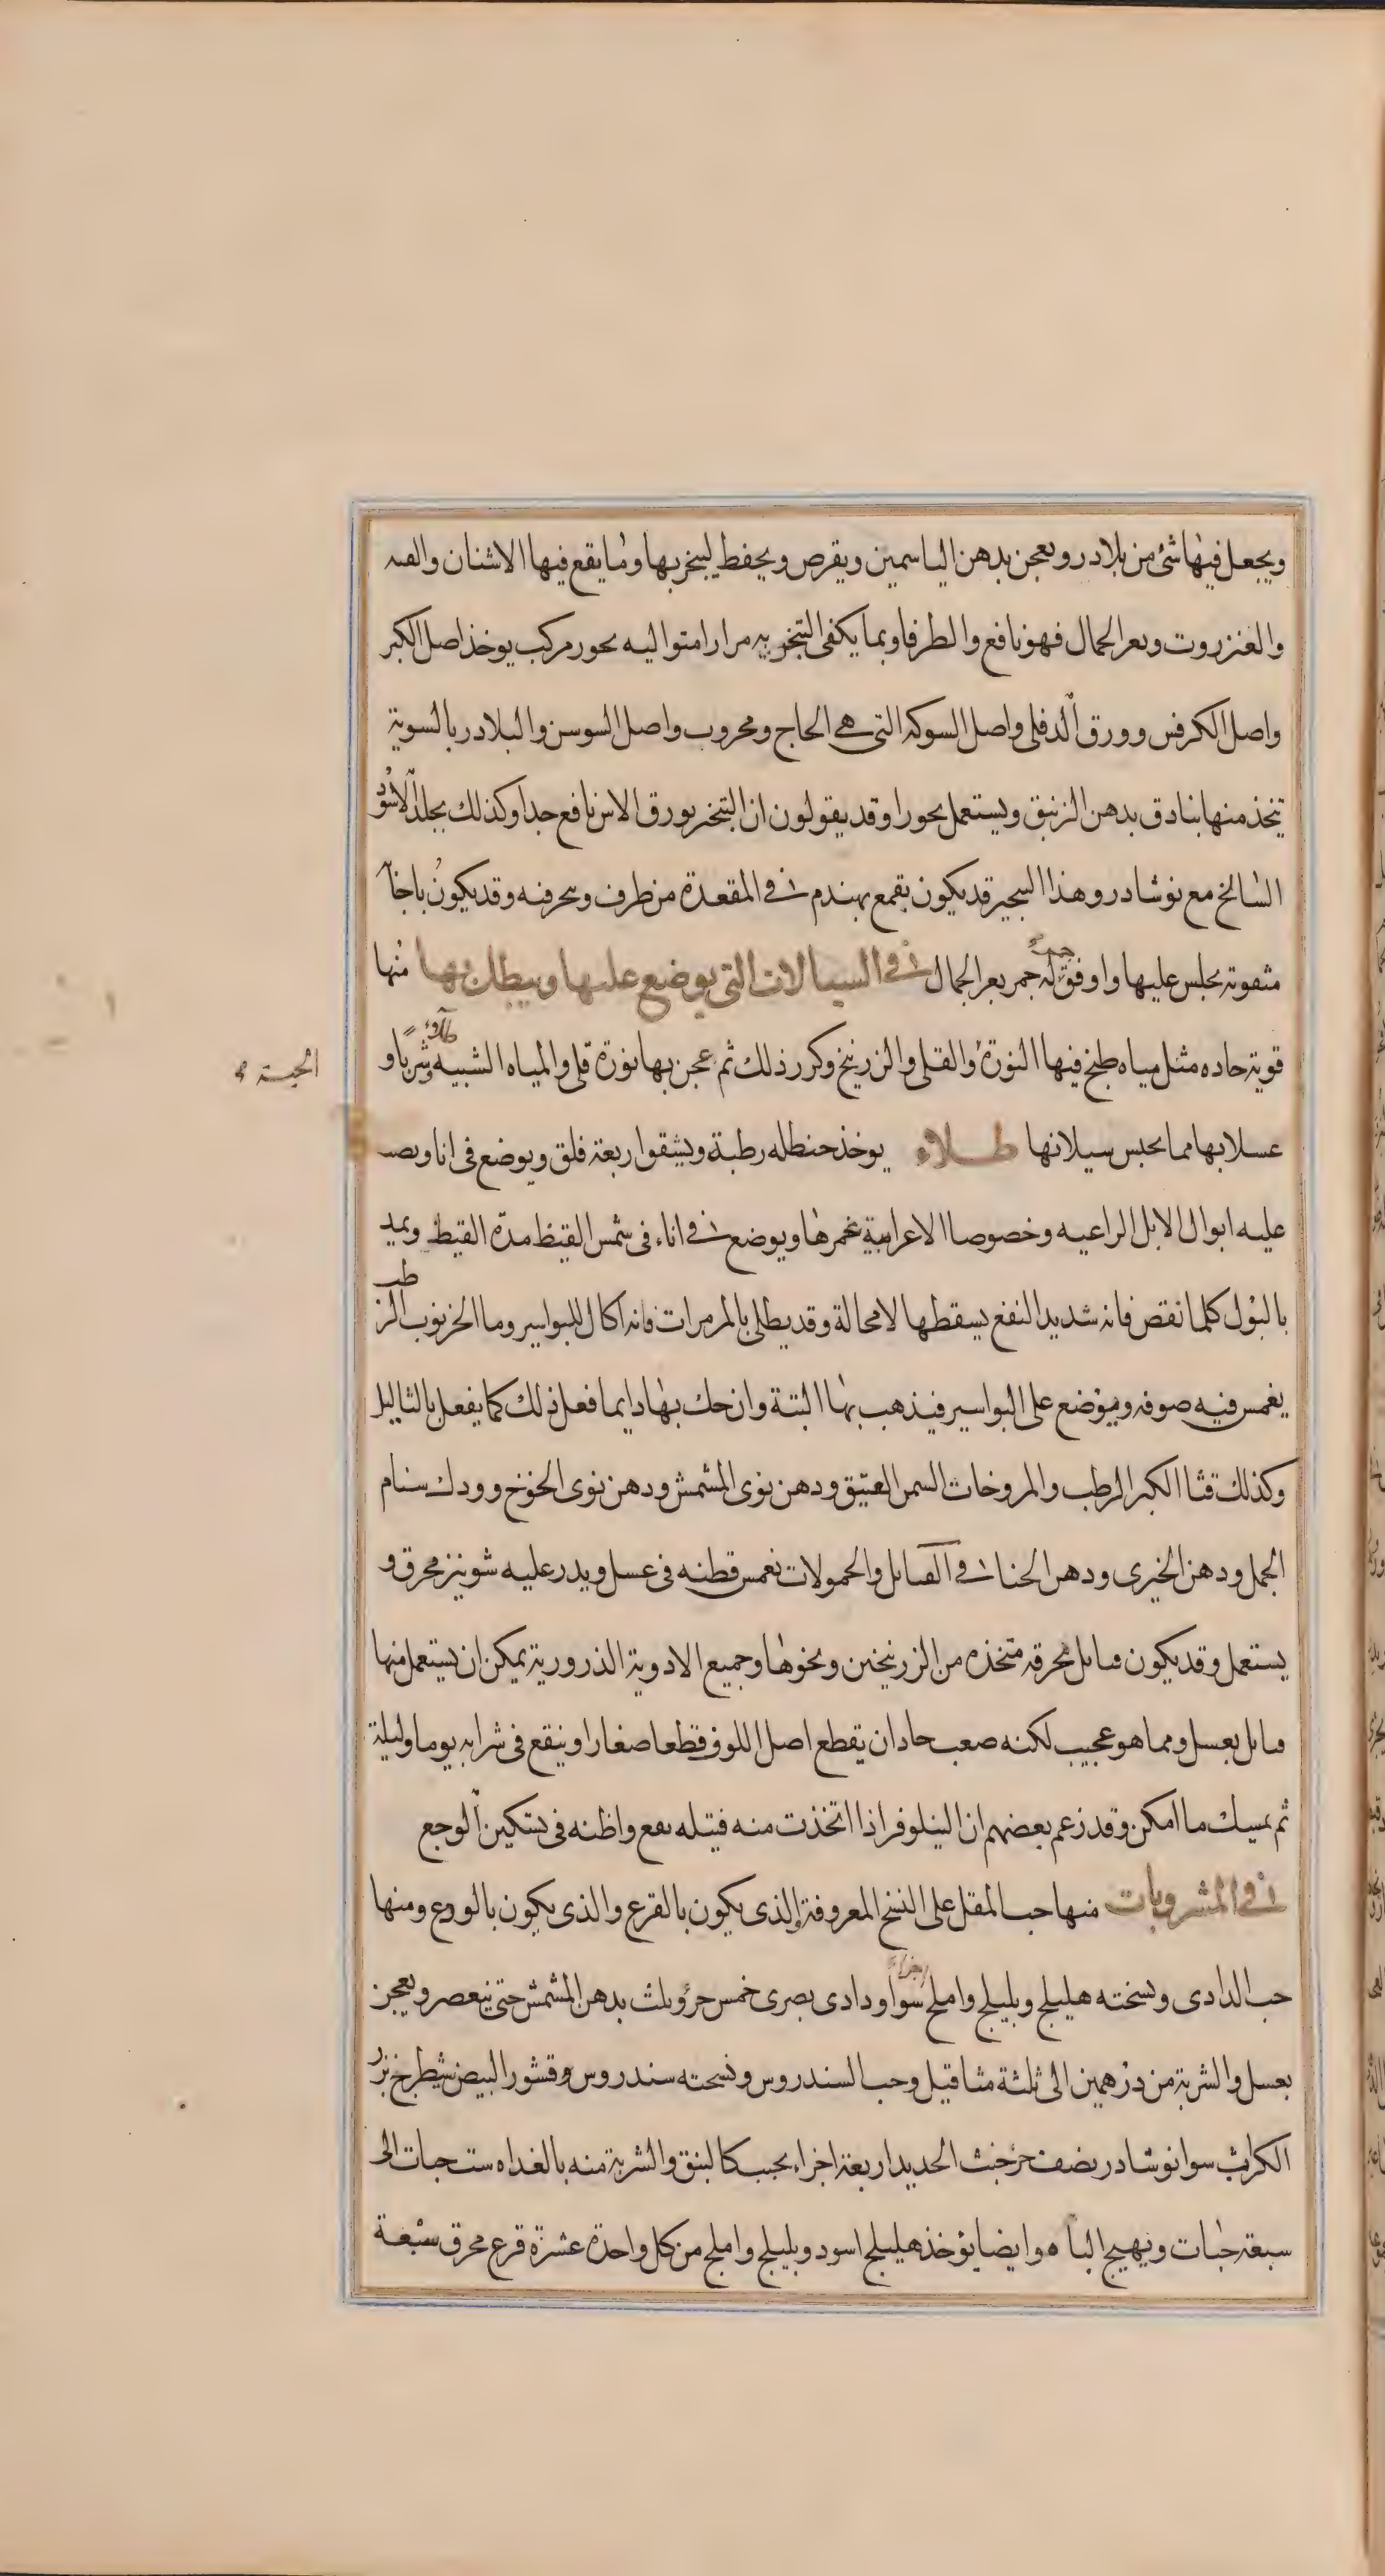 ويجعل فيها شئ من بلادر ويعجن بدهن الياسمين ويقرص ويحفط ليبخر بها ومما يقع فيها الاشنان والقنه
والعنزروت وبعر الجمال فهو نافع والطرفا وبما يكفى التبخر به مرارا متواليه بخور مركب يوخذ اصل الكبر
واصل الكرفس وورق الدفلى واصل السوكه التى هي الحاج ومحروب واصل السوسن والبلادر بالسوية
يتخذ منها بنادق بدهن الزنبق ويستعمل بحورا وقد يقولون ان التبخر بورق الاس نافع جدا وكذلك بجلد الاسود
السالخ مع نوشادر وهذا البجير قد يكون بقمع يهندم في المقعدة من طرف ويحرفنه وقد يكون باجانه
مثقوبة يجلس عليها واوفق له جمر بعر الجمال في السيالات التى يوضع عليها ويبطل بها منها
قوية حاده مثل مياه طبخ فيها النورة والقلى والزرنيخ وكرر ذلك ثم عجن بها نورة قلى والمياه الشبيه وشربا و
الحبسة
عسلا بها مما يحبس سيلانها طلاء يوخذ حنطله رطبة ويشقوا ربعة فلق ويوضع فى انا ويصب
عليه ابوال الابل الراعيه وخصوصا الاعرابية يغمرها ويوضع في اناء فى شمس القيظ مدة القيظ ويمد
بالبول كلما نقص فانه شديد النفع يسقطها لا محالة وقد يطلى بالمرمرات فانه اكال للبواسير وما الخرنوب الرطب
يغمس فيه صوفه ويوضع على البواسير فيذهب بها البتة وان حك بها دايما فعل ذلك كما يفعل بالثاليل
وكذلك قثا الكبر الرطب والمروخات السمن العتيق ودهن نوى المشمش ودهن نوى الخوخ وودك سنام
الجمل ودهن الخيرى ودهن الحنا في الفتايل والحمولات تغمس قطنه فى عسل ويدر عليه شونيز محرق و
يستعمل وقد يكون فتايل محرقه متخذه من الزرنيخين ونحوها وجميع الادوية الذرورية يمكن ان يستعمل منها
فتايل بعسل ومما هو عجيب لكنه صعب حاد ان يقطع اصل اللوف قطعا صغارا وينقع فى شرابه يوما وليلة
ثم يمسك ما امكن وقد زعم بعضهم ان النيلوفر اذا اتخذت منه فتيله نفع واظنه فى تسكين الوجع
في المشروبات منها حب المقل على النسخ المعروفة والذى يكون بالقرع والذى يكون بالودع ومنها
حب الدادى ونسخته هليلج وبليلج واملج سوا ودادى بصرى خمس جزؤ يلت بدهن المشمش حتى ينعصر ويعجن
بعسل والشربة من درهمين الى ثلثة مثاقيل وحب السندروس ونسخته سندروس وقشور البيض شيطرخ بزر
الكراث سوا نوشادر نصف جز خبث الحديد اربعة اجزاء يحبب كالبنق والشربة منه بالغداه ست حبات الى
سبعة حبات ويهيج الباه وايضا يؤخذ هليلج اسود وبليلج واملج من كل واحدة عشرة قرع محرق سبعة